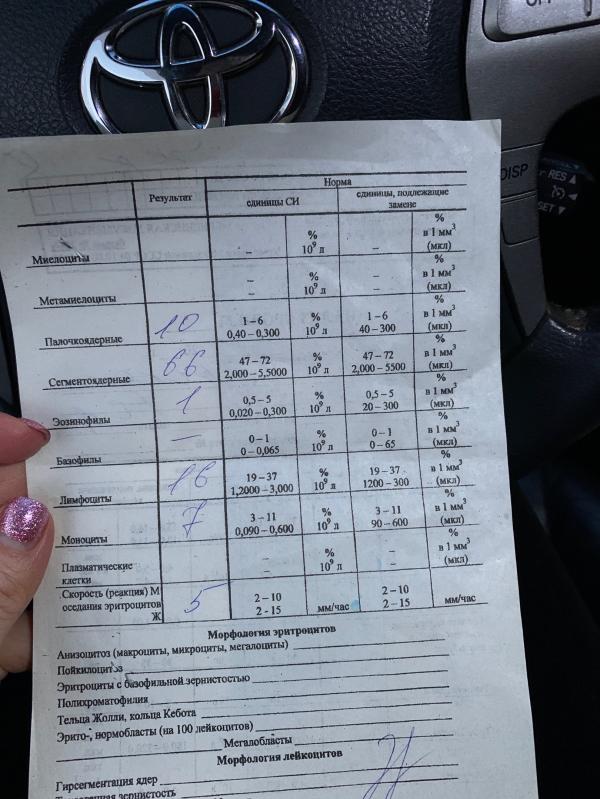 OFF
DISP
RES ▲
SET ▼
Результат
Норма
единицы СИ
единицы, подлежащие замене
Миелоциты – % 10⁹ л – % в 1 мм³ (мкл)
Метамиелоциты – – % 10⁹ л – – % в 1 мм³ (мкл)
Палочкоядерные 10 1 – 6 0,40 – 0,300 % 10⁹ л 1 – 6 40 – 300 % в 1 мм³ (мкл)
Сегментоядерные 66 47 – 72 2,000 – 5,5000 % 10⁹ л 47 – 72 2,000 – 5500 % в 1 мм³ (мкл)
Эозинофилы 1 0,5 – 5 0,020 – 0,300 % 10⁹ л 0,5 – 5 20 – 300 % в 1 мм³ (мкл)
Базофилы – 0 – 1 0 – 0,065 % 10⁹ л 0 – 1 0 – 65 % в 1 мм³ (мкл)
Лимфоциты 16 19 – 37 1,2000 – 3,000 % 10⁹ л 19 – 37 1200 – 300 % в 1 мм³ (мкл)
Моноциты 7 3 – 11 0,090 – 0,600 % 10⁹ л 3 – 11 90 – 600 % в 1 мм³ (мкл)
Плазматические клетки – – % 10⁹ л – – % в 1 мм³ (мкл)
Скорость (реакция) М оседания эритроцитов Ж 5 2 – 10 2 - 15 мм/час 2 – 10 2 – 15 мм/час
Морфология эритроцитов
Анизоцитоз (макроциты, микроциты, мегалоциты)
Пойкилоцитоз
Эритроциты с базофильной зернистостью
Полихроматофилия
Тельца Жолли, кольца Кебота
Эрито-, нормобласты (на 100 лейкоцитов)
Мегалобласты
Морфология лейкоцитов
Гирсегментация ядер
зернистость